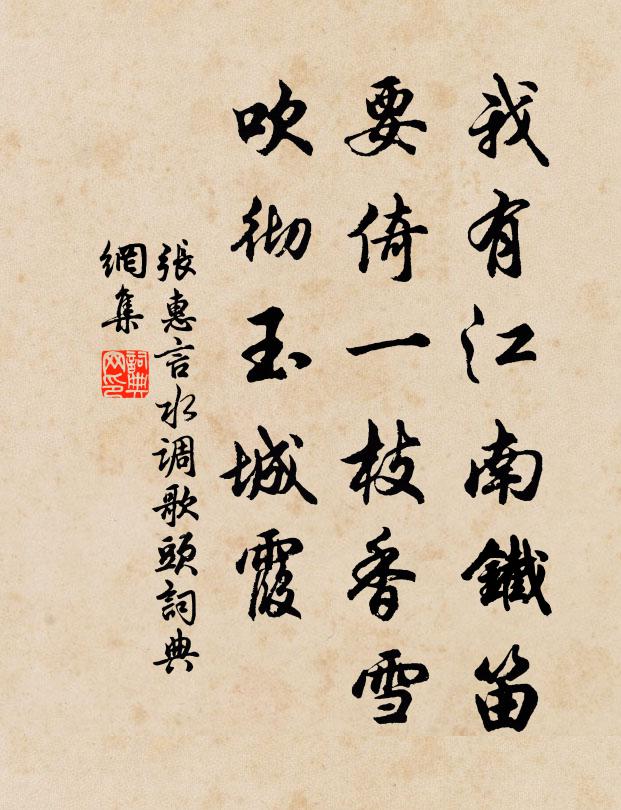 我有江南鐵笛
要倚一枝香雪
吹彻玉城霞
張惠言水调歌頭詞典
網集
詞典
网印